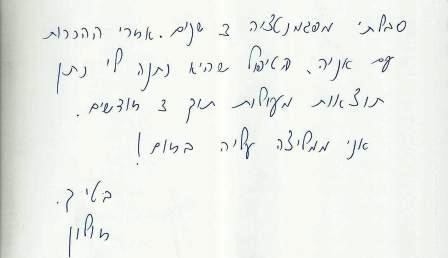 סבלתי מפגמנטציה 3 שנים. אחרי ההכרות
עם אניה, הטיפול שהיא נתנה לי נתן
תוצאות מעולות תוך 3 חודשים.
אני ממליצה עליה בחום!
בטי ק.
חולון